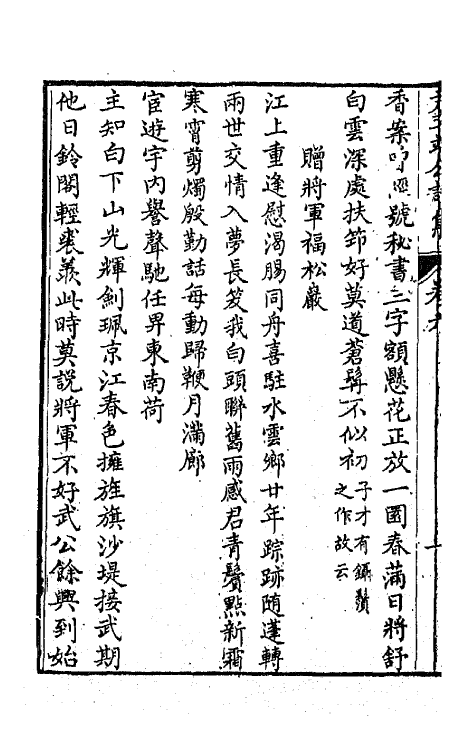 香案 號秘書三字額懸花正放一園春滿日將舒
白雲深處扶筇好莫道蒼髯不似初子才有鑷鬚之作故云
贈將軍福松巖
江上重逢慰渴腸同舟喜駐水雲鄉廿年踪跡隨蓬轉
兩世交情入夢長笑我白頭聯舊雨感君青鬢點新霜
寒宵剪燭殷勤話每動歸鞭月滿廊
宦遊宇內譽聲馳任畀東南荷
主知白下山光輝劍珮京江春色擁旌旗沙堤接武期
他日鈴閣輕裘羨此時莫說將軍不好武公餘興到始